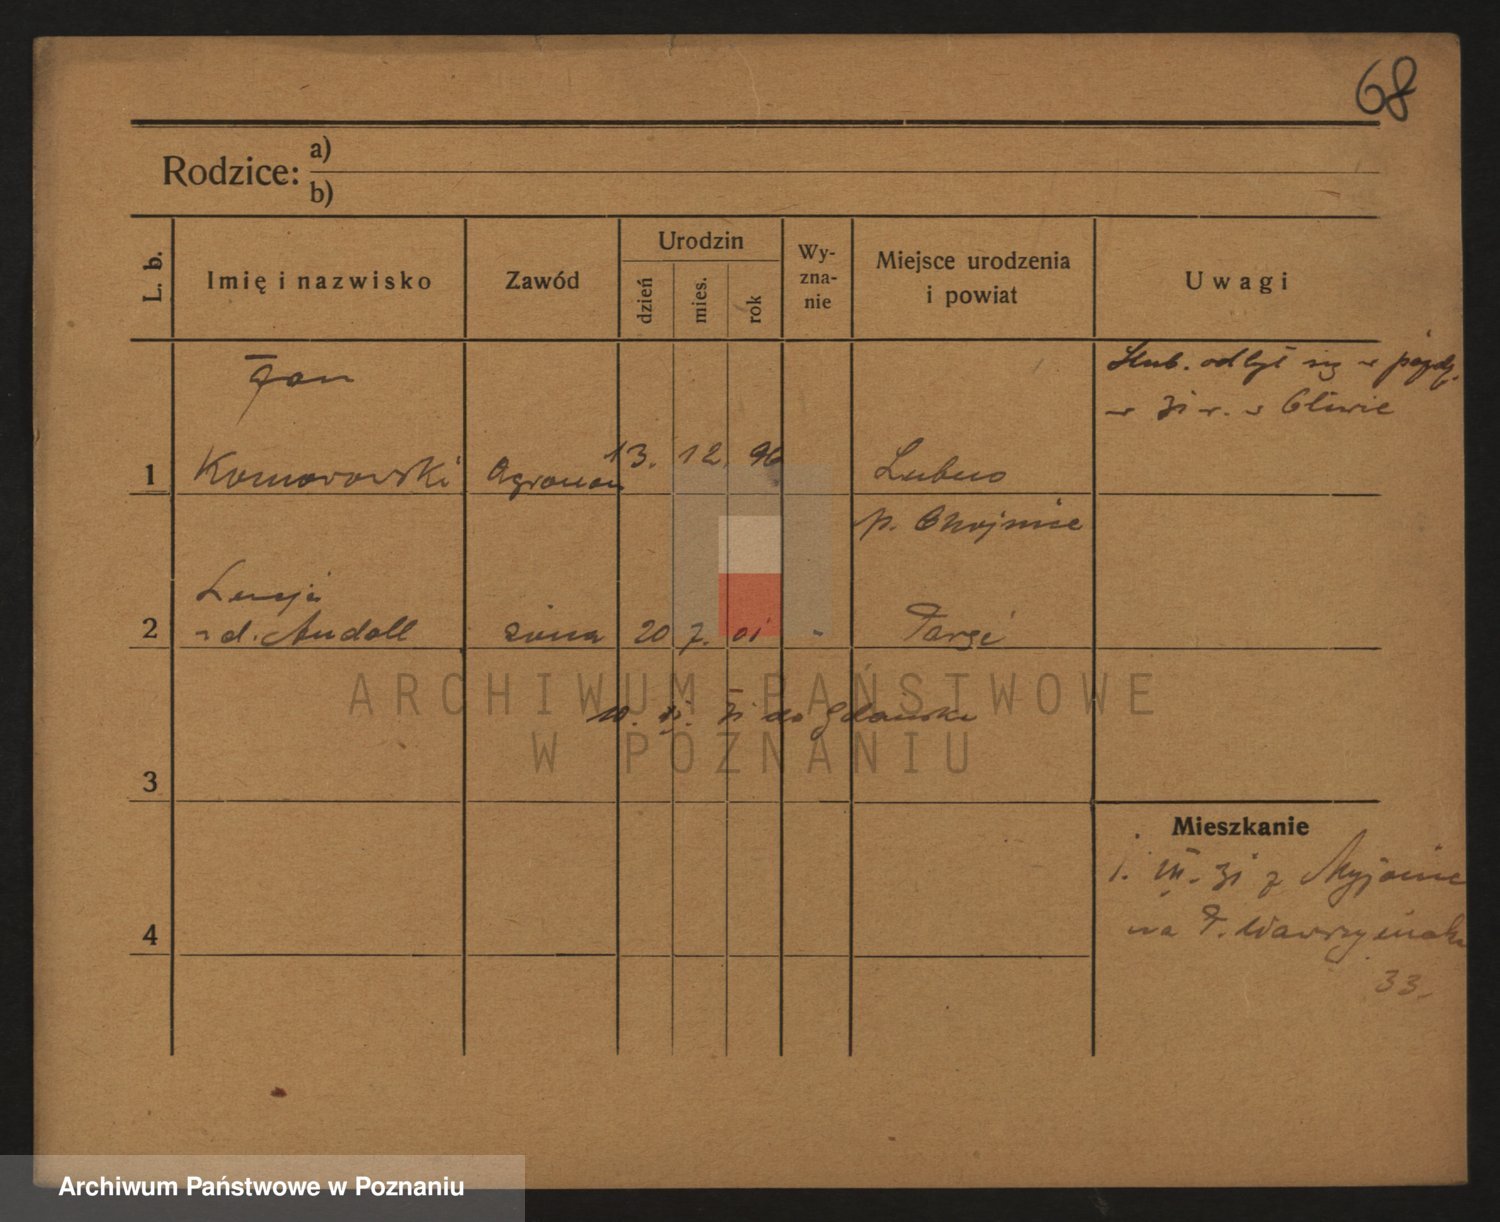 68
Rodzice: a)
b)
L. b. Imię i nazwisko Zawód Urodzin dzień mies. rok Wy-zna-nie Miejsce urodzenia i powiat Uwagi
Jan
odbył się w
w 31 r. w
1 Komorowski Agronom 13. 12. 96 Lubno
p. Chojnice
Lucja
2 żona 20 7. 01 -
31 do Gdańska
ARCHIWUM PAŃSTWOWE
W POZNANIU
3
Mieszkanie
31 z
4
na
33.
Archiwum Państwowe w Poznaniu